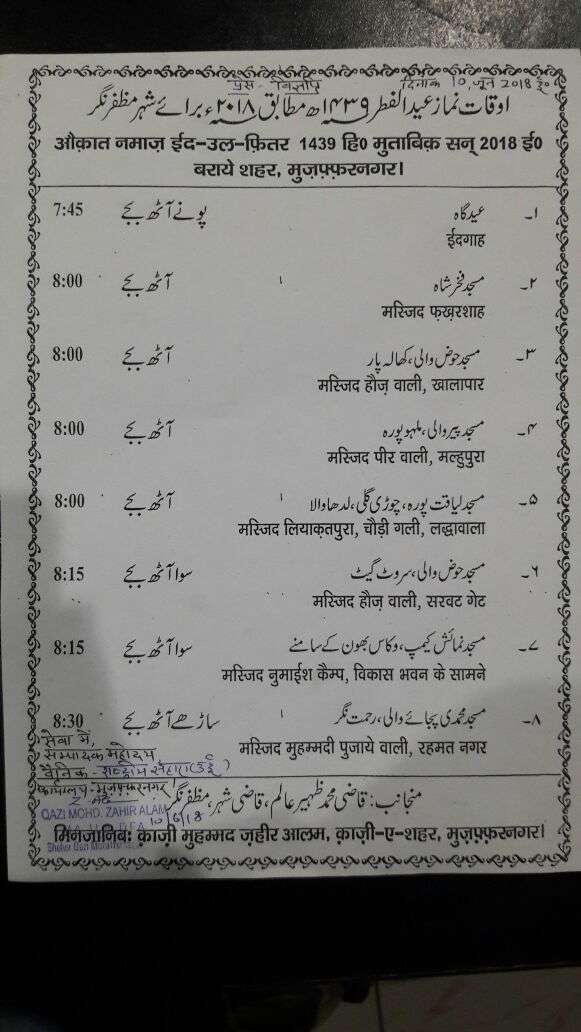 प्रेस विज्ञप्ति दिनांक 10, जून 2018 ई०
اوقات نماز عید الفطر ۱۴۳۹ھ مطابق ۲۰۱۸ء برائے شہر مظفر نگر
औक़ात नमाज़ ईद-उल-फ़ितर 1439 हि0 मुताबिक़ सन् 2018 ई0
बराये शहर, मुज़फ़्फ़रनगर।
۱۔ عید گاہ پونے آٹھ بجے 7:45
ईदगाह
۲۔ مسجد فخر شاہ آٹھ بجے 8:00
मस्जिद फ़ख़रशाह
۳۔ مسجد حوض والی، کھالہ پار آٹھ بجے 8:00
मस्जिद हौज़ वाली, खालापार
۴۔ مسجد پیر والی، ملہو پورہ آٹھ بجے 8:00
मस्जिद पीर वाली, मल्हुपुरा
۵۔ مسجد لیاقت پورہ، چوڑی گلی، لدھا والا آٹھ بجے 8:00
मस्जिद लियाक़तपुरा, चौड़ी गली, लद्धावाला
۶۔ مسجد حوض والی، سروٹ گیٹ سوا آٹھ بجے 8:15
मस्जिद हौज़ वाली, सरवट गेट
۷۔ مسجد نمائش کیمپ، وکاس بھون کے سامنے سوا آٹھ بجے 8:15
मस्जिद नुमाईश कैम्प, विकास भवन के सामने
۸۔ مسجد محمدی پجائے والی، رحمت نگر ساڑھے آٹھ بجے 8:30
मस्जिद मुहम्मदी पुजाये वाली, रहमत नगर
सेवा में,
सम्पादक महोदय
दैनिक - राष्ट्रीय सहारा (उर्दू)
कार्यालय - मुज़फ़्फ़रनगर
منجانب: قاضی محمد ظہیر عالم، قاضی شہر مظفر نگر
QAZI MOHD. ZAHIR ALAM
10/6/18
मिनजानिबः क़ाज़ी मुहम्मद ज़हीर आलम, क़ाज़ी-ए-शहर, मुज़फ़्फ़रनगर।